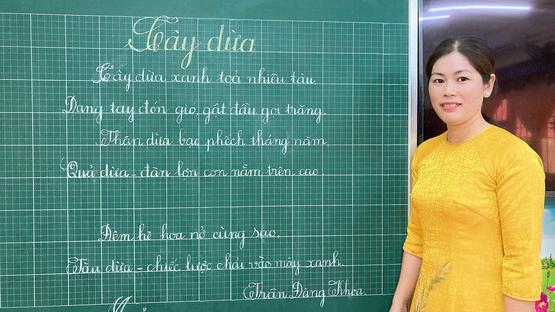 Cây dừa
Cây dừa xanh toả nhiều tàu
Dang tay đón gió, gật đầu gọi trăng.
Thân dừa bạc phếch tháng năm,
Quả dừa - đàn lợn con nằm trên cao.
Đêm hè hoa nở cùng sao,
Tàu dừa - chiếc lược chải vào mây xanh.
Trần Đăng Khoa